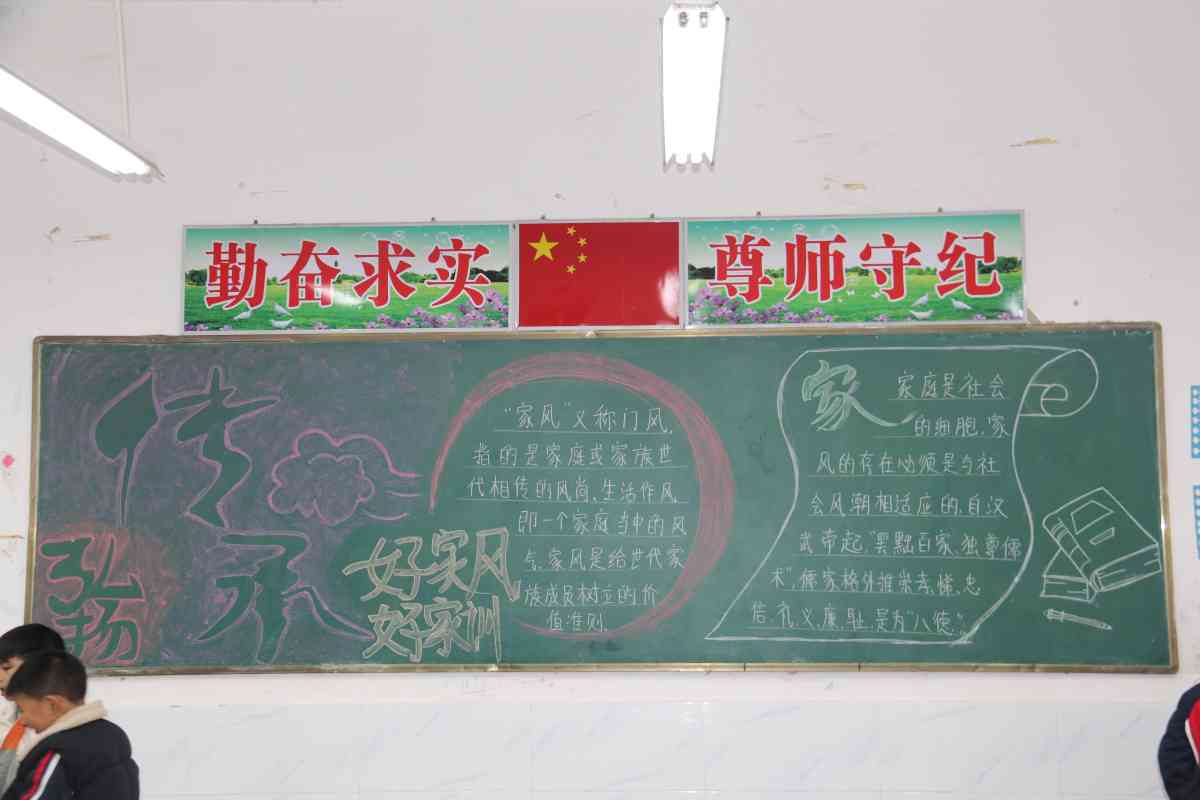 勤奋求实
尊师守纪
传承
弘扬
好家风
好家训
“家风”又称门风,
指的是家庭或家族世
代相传的风尚、生活作风,
即一个家庭当中的风
气,家风是给世代家
族成员树立的价
值准则.
家
家庭是社会
的细胞,家
风的存在必须是与社
会风朝相适应的,自汉
武帝起,“罢黜百家,独尊儒
术”,儒家格外推崇孝,悌,忠,
信,礼,义,廉,耻,是为“八德”。